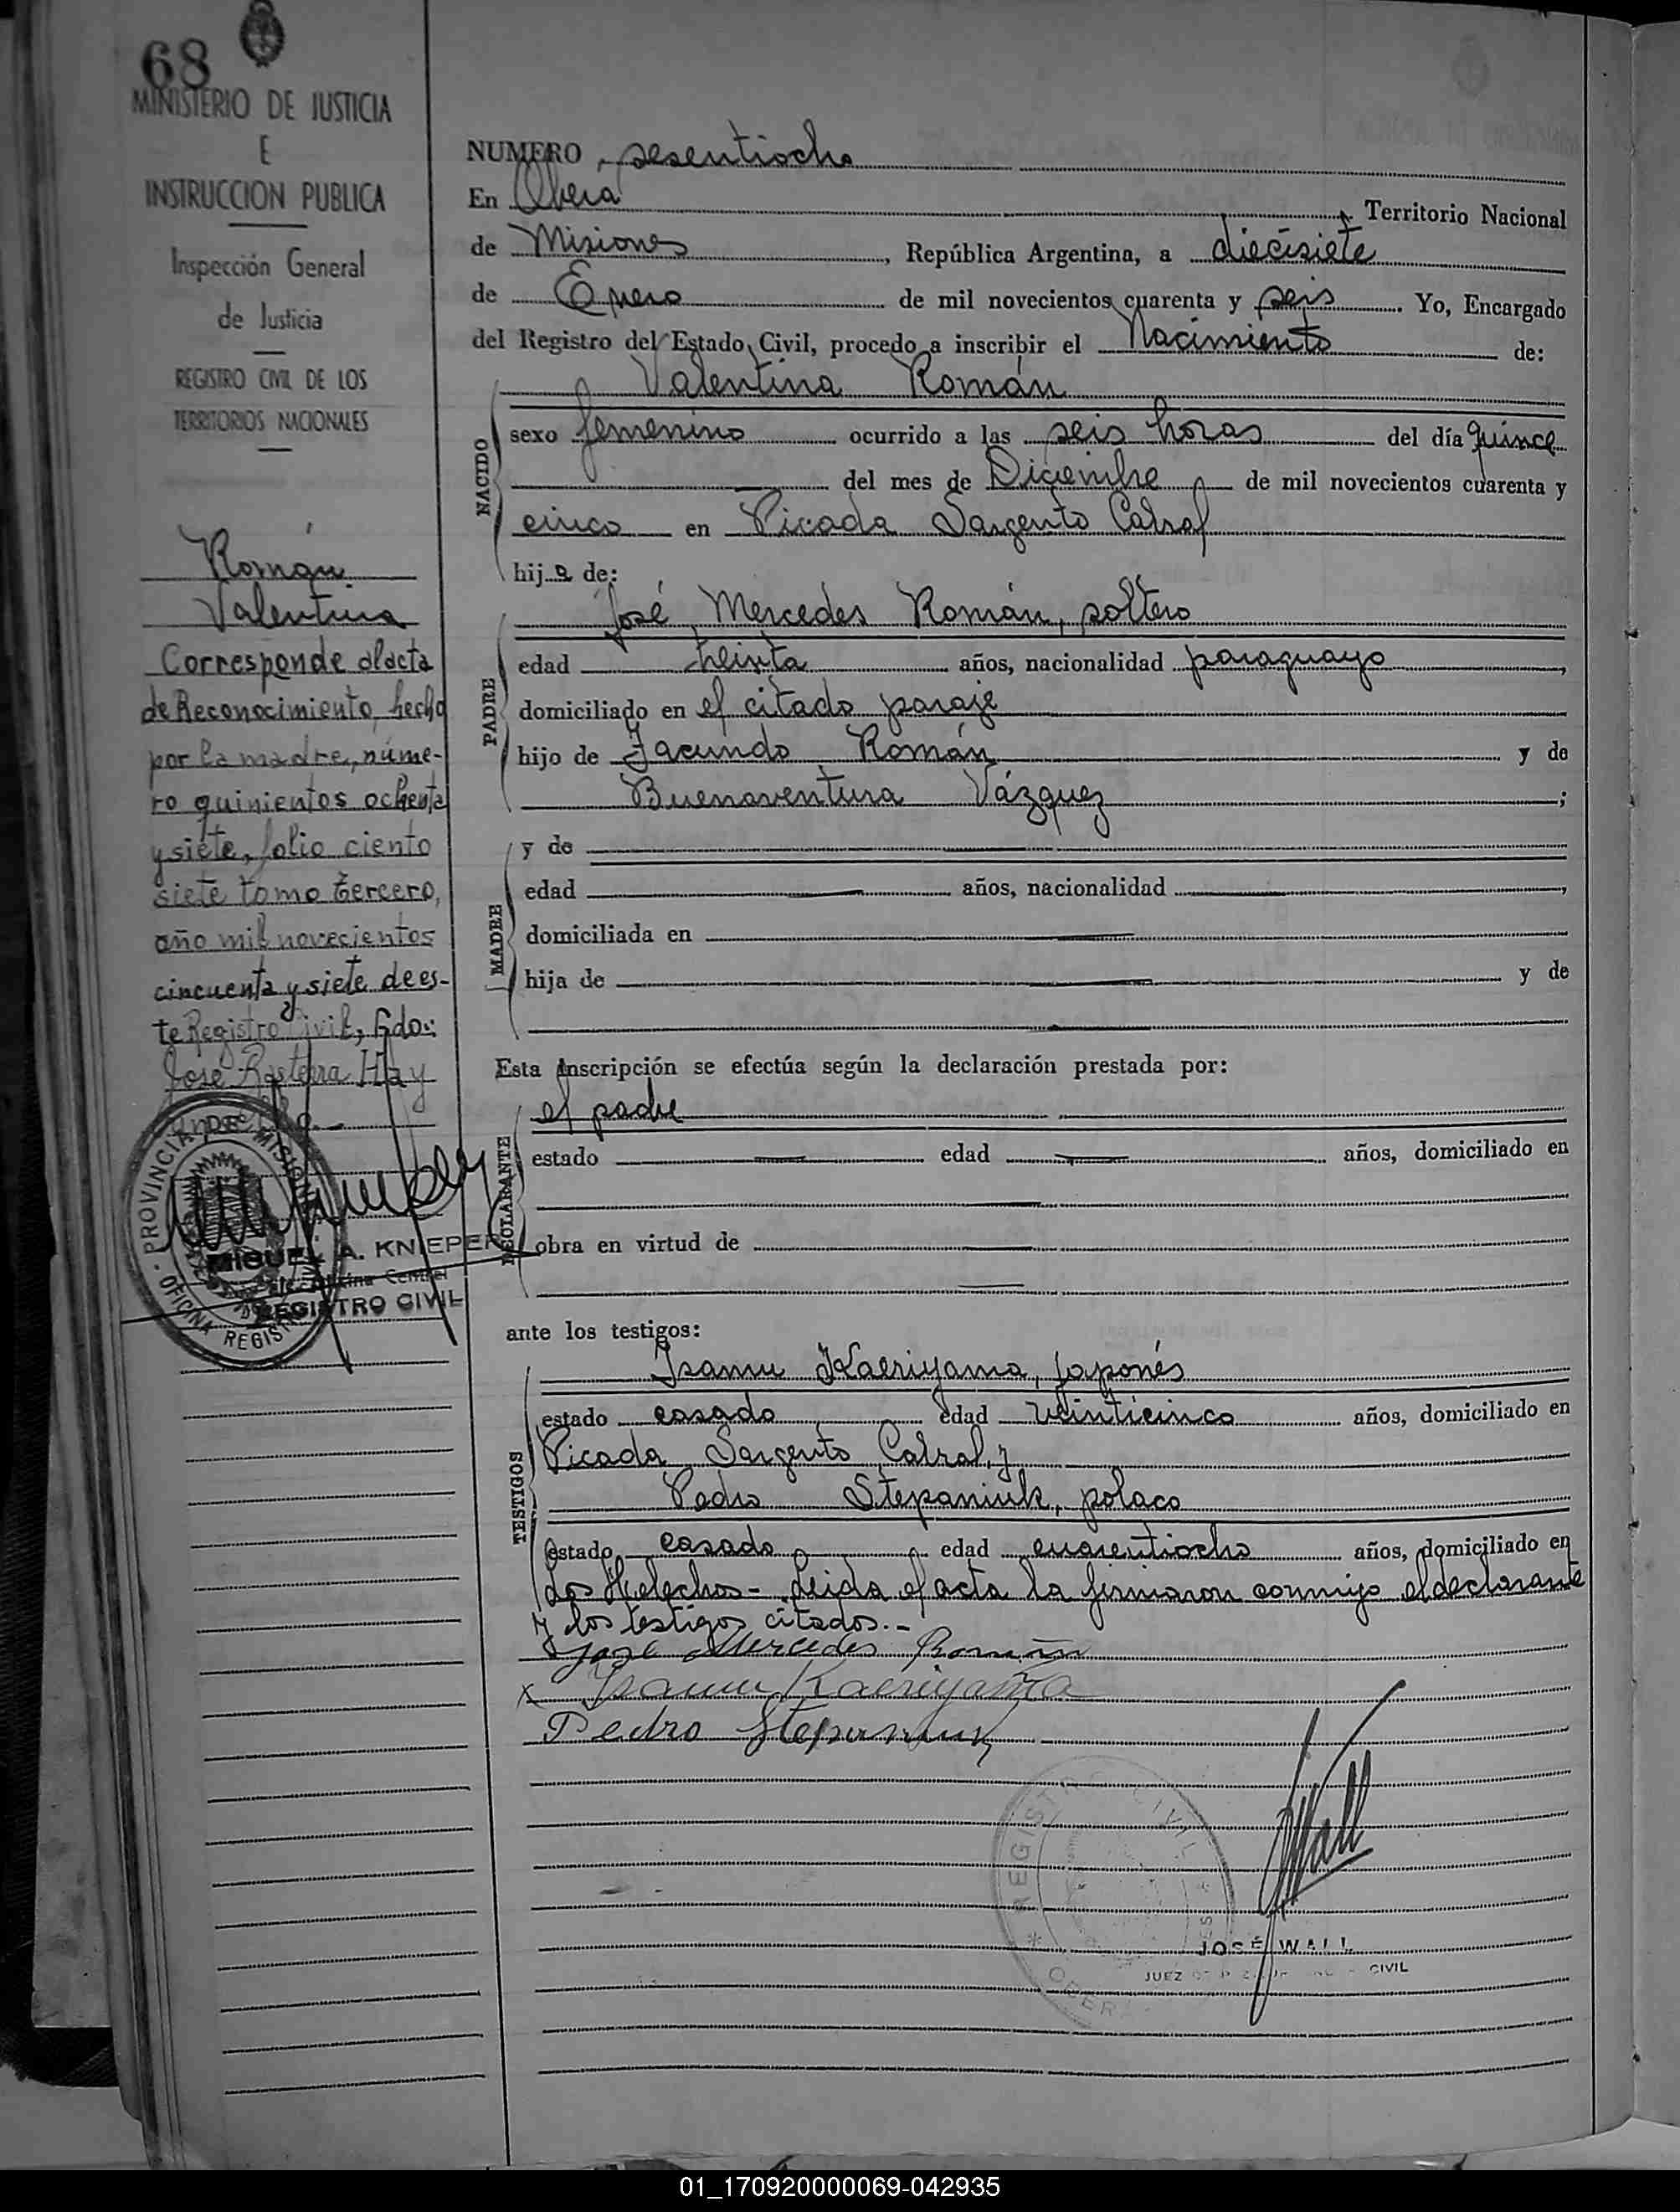 68
MINISTERIO DE JUSTICIA
E
INSTRUCCION PUBLICA
Inspección General
de Justicia
REGISTRO CIVIL DE LOS
TERRITORIOS NACIONALES
Román
Valentina
Corresponde al acta
de Reconocimiento, hecho
por la madre, núme-
ro quinientos ochenta
y siete, folio ciento
siete tomo tercero,
año mil novecientos
cincuenta y siete de es-
te Registro Civil, Fdo:
José Hay
PROVINCIA DE MISIONES
OFICINA REGIST
MIGUEL A. KNIEPER
Oficina Central
REGISTRO CIVIL
NUMERO sesentiocho
En Obera Territorio Nacional
de Misiones, República Argentina, a diecisiete
de Enero de mil novecientos cuarenta y seis. Yo, Encargado
del Registro del Estado Civil, procedo a inscribir el Nacimiento de:
NACIDO
Valentina Román
sexo femenino ocurrido a las seis horas del día quince
del mes de Diciembre de mil novecientos cuarenta y
cinco en Picada Sargento Cabral
hija de:
PADRE
José Mercedes Román, soltero
edad treinta años, nacionalidad paraguayo,
domiciliado en el citado paraje
hijo de Facundo Román y de
Buenaventura Vázquez;
MADRE
y de
edad años, nacionalidad,
domiciliada en
hija de y de
Esta inscripción se efectúa según la declaración prestada por:
DECLARANTE
el padre
estado edad años, domiciliado en
obra en virtud de
ante los testigos:
TESTIGOS
Isamu Kaeriyama, japonés
estado casado edad veinticinco años, domiciliado en
Picada Sargento Cabral, y
Pedro Stepaniuk, polaco
estado casado edad cuarentiocho años, domiciliado en
Los Helechos- Leida el acta la firmaron conmigo el declarante
y los testigos citados.-
José Mercedes Román
x Isamu Kaeriyama
Pedro Stepaniuk
JWall
REGISTRO CIVIL
OBERA
JOSÉ WALL
JUEZ DE PAZ CIVIL
01_170920000069-042935